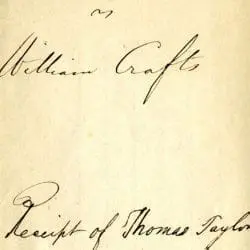 William Crafts
Receipt of Thomas Taylor